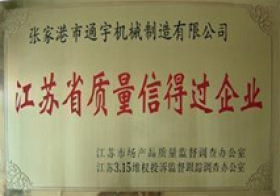 张家港市通宇机械制造有限公司
江苏省质量信得过企业
江苏市场产品质量监督调查办公室
江苏3.15维权投诉监督跟踪调查办公室